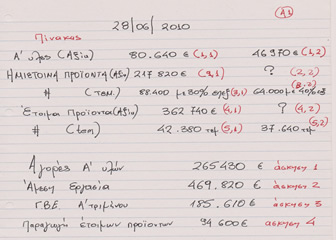 A1
28/06/2010
Πίνακας
Α' ύλες (Αξία) 80.640 € (1,1) 46970 € (1,2)
Ημιέτοιμα προϊόντα (Αξία) 217.820 € (2,1) ? (2,2)
# (τεμ.) 88.400 με 30% επεξ (3,1) 64.000 με 40% επεξ (3,2)
Έτοιμα Προϊόντα (Αξία) 362740 € (4,1) ? (4,2)
# (τεμ) 42.380 τεμ (5,1) 37.640 τεμ (5,2)
Αγορές Α' υλών 265430 € άσκηση 1
Άμεση Εργασία 469.820 € άσκηση 2
Γ.Β.Ε. Α' τριμήνου 185.610 € άσκηση 3
Παραγωγή έτοιμων προϊόντων 94600 € άσκηση 4